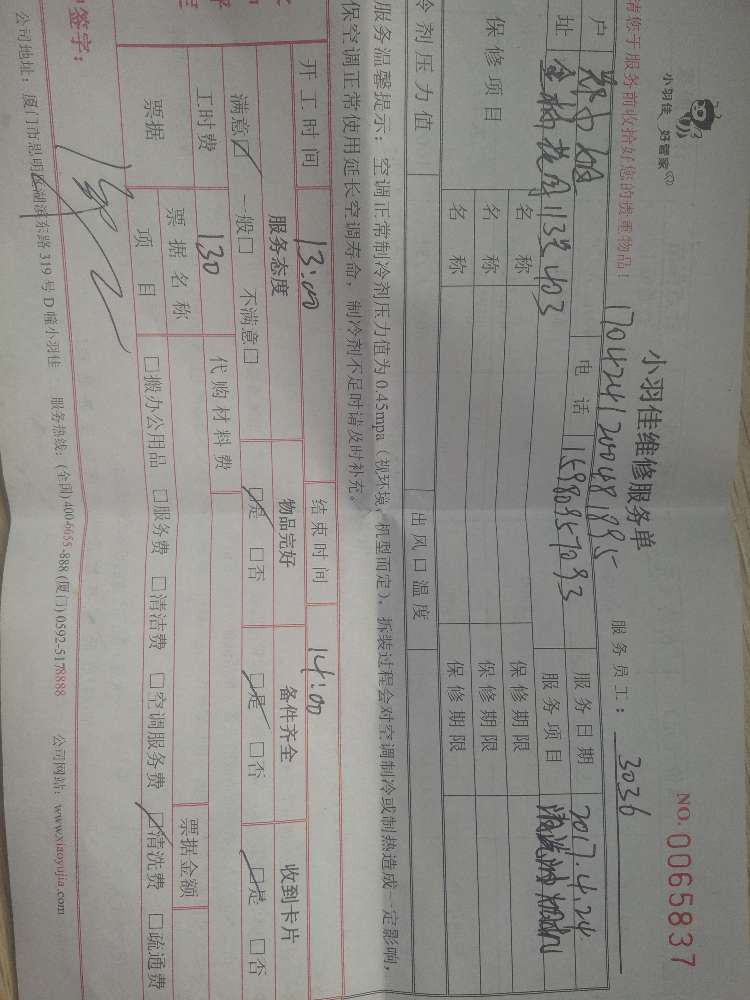 小羽佳 好管家
小羽佳维修服务单
NO. 0065837
请您于服务前收拾好您的贵重物品！
1704241200481895
服务员工： 3036
户
电话 15980957093
服务日期 2017.4.24
址 113号403
服务项目
保修项目
名称 保修期限
名称 保修期限
名称 保修期限
冷剂压力值 出风口温度
服务温馨提示：空调正常制冷剂压力值为0.45mpa（视环境、机型而定），拆装过程会对空调制冷或制热造成一定影响，
保空调正常使用延长空调寿命，制冷剂不足时请及时补充。
开工时间 13:00 结束时间 14:00
服务态度 物品完好 备件齐全 收到卡片
满意□ 一般□ 不满意□ □是 □否 □是 □否 □是 □否
工时费 130 代购材料费
票据 票据名称 票据金额
项目 □搬办公用品 □服务费 □清洁费 □空调服务费 □清洗费 □疏通费
签字：
公司地址：厦门市思明区湖滨东路319号D幢小羽佳 服务热线：(全国)400-6655-888 (厦门)0592-5178888 公司网站：www.xiaoyujia.com